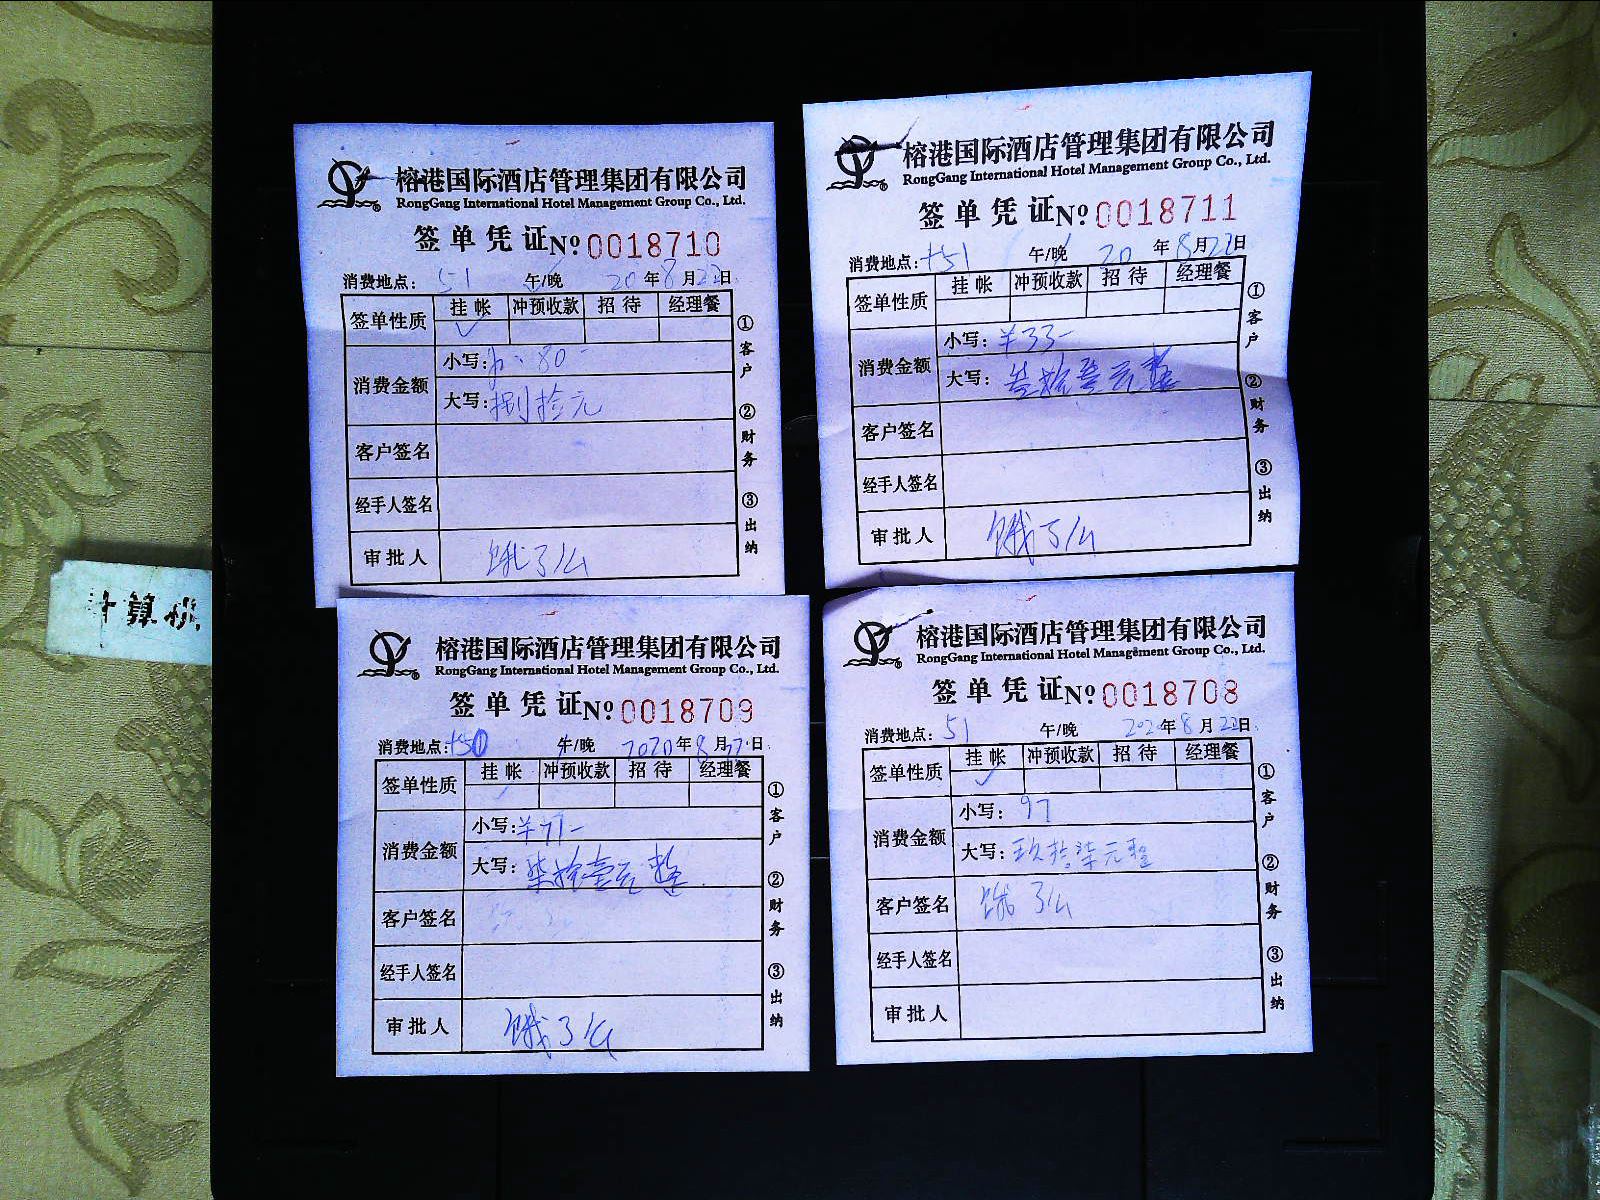 榕港国际酒店管理集团有限公司
RongGang International Hotel Management Group Co., Ltd.
签单凭证 No 0018710
消费地点: 51 午/晚 20年8月22日
签单性质 挂帐 冲预收款 招待 经理餐
消费金额 小写: 80-
大写: 捌拾元
客户签名
经手人签名
审批人 饿了么
①客户 ②财务 ③出纳
榕港国际酒店管理集团有限公司
RongGang International Hotel Management Group Co., Ltd.
签单凭证 No 0018711
消费地点: +51 午/晚 20年8月22日
签单性质 挂帐 冲预收款 招待 经理餐
消费金额 小写: ¥33-
大写: 叁拾叁元整
客户签名
经手人签名
审批人 饿了么
①客户 ②财务 ③出纳
计算机
榕港国际酒店管理集团有限公司
RongGang International Hotel Management Group Co., Ltd.
签单凭证 No 0018709
消费地点: 午/晚 2020年8月22日
签单性质 挂帐 冲预收款 招待 经理餐
消费金额 小写: ¥71-
大写: 柒拾壹元整
客户签名
经手人签名
审批人 饿了么
①客户 ②财务 ③出纳
榕港国际酒店管理集团有限公司
RongGang International Hotel Management Group Co., Ltd.
签单凭证 No 0018708
消费地点: 51 午/晚 2020年8月22日
签单性质 挂帐 冲预收款 招待 经理餐
消费金额 小写: 97
大写: 玖拾柒元整
客户签名 饿了么
经手人签名
审批人
①客户 ②财务 ③出纳